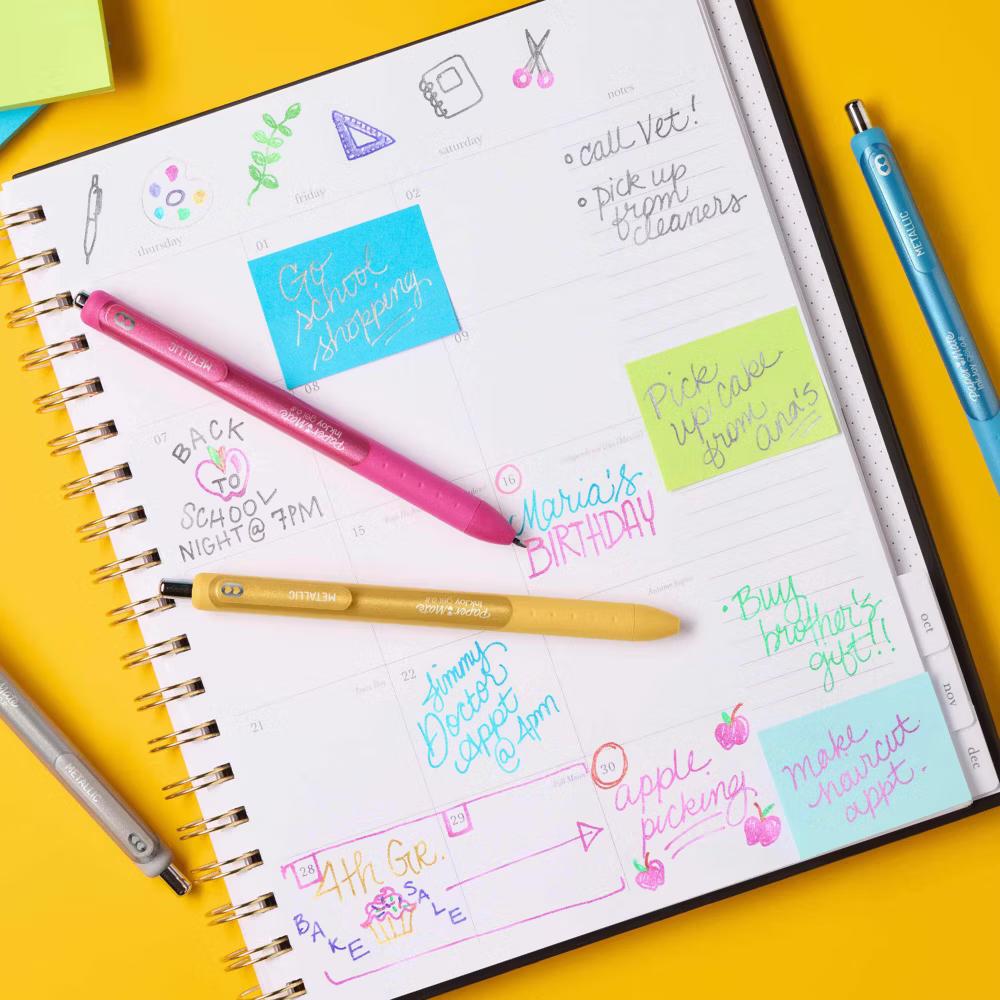 thursday
friday
saturday
notes
01
02
Go
school
shopping
• call Vet!
• pick up
from
cleaners
07
BACK
TO
SCHOOL
NIGHT @ 7PM
08
09
Pick
up cake
from
ana's
METALLIC
Paper Mate
InkJoy gel 0.8
15
16
Maria's
BIRTHDAY
METALLIC
Paper Mate
InkJoy gel 0.8
METALLIC
Paper Mate
InkJoy gel 0.8
METALLIC
21
22
Jimmy
Doctor
Appt
@ 4pm
• Buy
brother's
gift!!
oct
nov
dec
28
4th Gr.
BAKE SALE
29
Full Moon
30
apple
picking
make
haircut
appt.